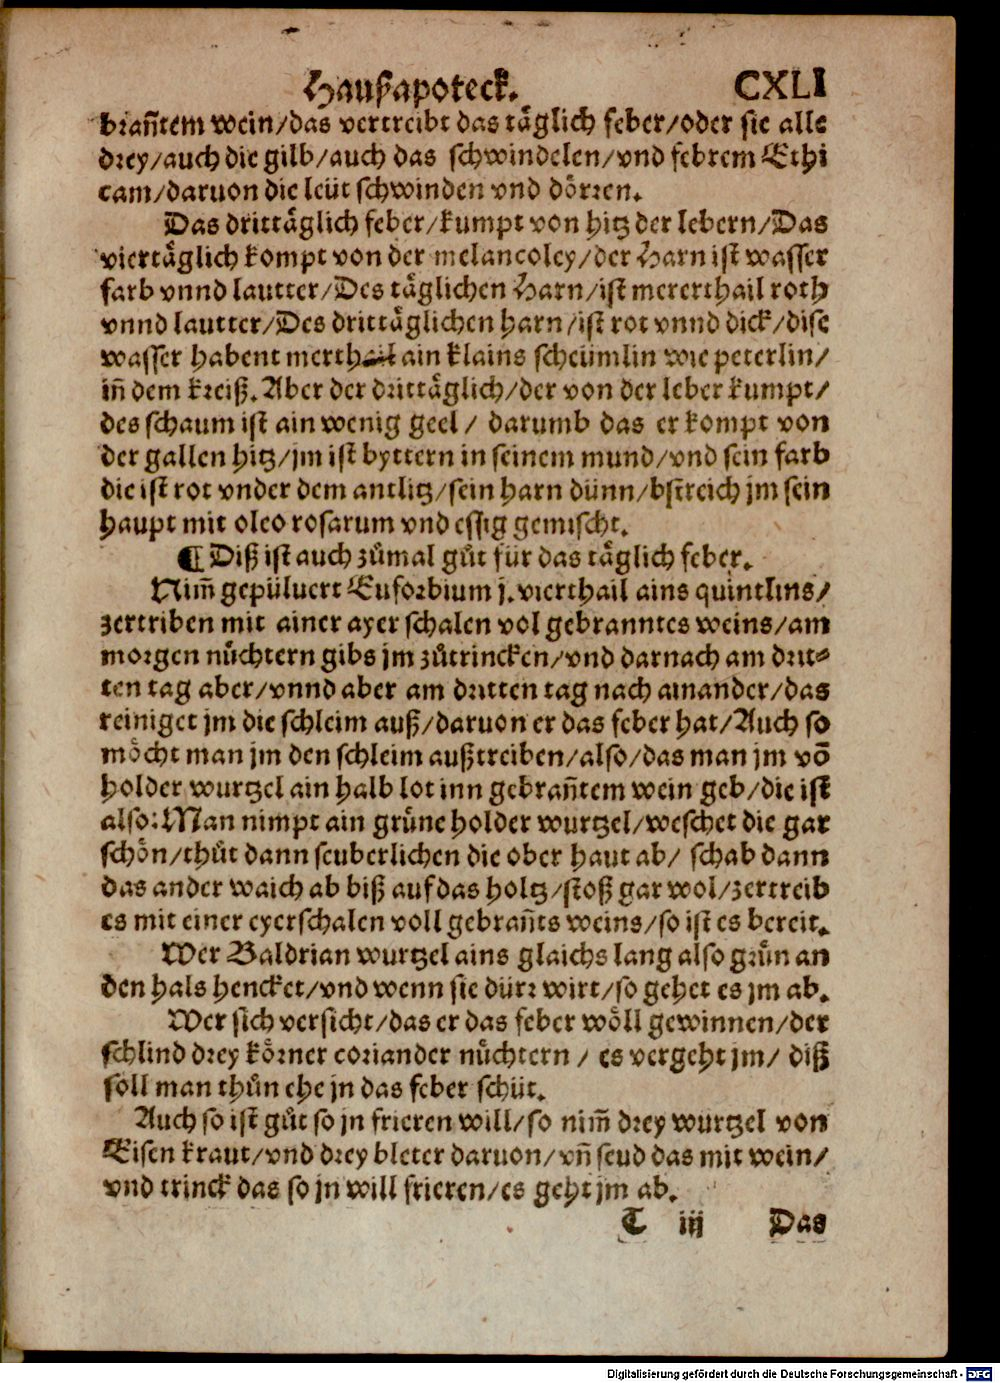 Haußapoteck. CXLI
brañtem wein/das vertreibt das täglich feber/oder sie alle
drey/auch die gilb/auch das schwindelen/vnd febrem Ethi
cam/daruon die leüt schwinden vnd dörren.
Das drittäglich feber/kumpt von hitz der lebern/Das
viertäglich kompt von der melancoley/der Harn ist wasser
farb vnnd lautter/Des täglichen Harn/ist mererthail roth
vnnd lautter/Des drittäglichen harn/ist rot vnnd dick/dise
wasser habent merthail ain klains scheümlin wie peterlin/
iñ dem kreiß. Aber der drittäglich/der von der leber kumpt/
des schaum ist ain wenig geel/ darumb das er kompt von
der gallen hitz/jm ist byttern in seinem mund/vnd sein farb
die ist rot vnder dem antlitz/sein harn dünn/bstreich jm sein
haupt mit oleo rosarum vnd essig gemischt.
¶ Diß ist auch zůmal gůt für das täglich feber.
Nim̃ gepüluert Euforbium j. vierthail ains quintlins/
zertriben mit ainer ayer schalen vol gebranntes weins/am
morgen nůchtern gibs jm zůtrincken/vnd darnach am drit⸗
ten tag aber/vnnd aber am dritten tag nach ainander/das
reiniget jm die schleim auß/daruon er das feber hat/Auch so
möcht man jm den schleim außtreiben/also/das man jm võ
holder wurtzel ain halb lot inn gebrañtem wein geb/die ist
also: Man nimpt ain grůne holder wurtzel/weschet die gar
schön/thůt dann seuberlichen die ober haut ab/ schab dann
das ander waich ab biß auf das holtz/stoß gar wol/zertreib
es mit einer eyerschalen voll gebrañts weins/so ist es bereit.
Wer Baldrian wurtzel ains glaichs lang also grůn an
den hals hencket/vnd wenn sie dürr wirt/so gehet es jm ab.
Wer sich versicht/das er das feber wöll gewinnen/der
schlind drey körner coriander nůchtern/ es vergeht jm/ diß
soll man thůn ehe jn das feber schüt.
Auch so ist gůt so jn frieren will/so nim̃ drey wurtzel von
Eisen kraut/vnd drey bleter daruon/vñ seud das mit wein/
vnd trinck das so jn will frieren/es geht jm ab.
T iij Das
Digitalisierung gefördert durch die Deutsche Forschungsgemeinschaft - DFG